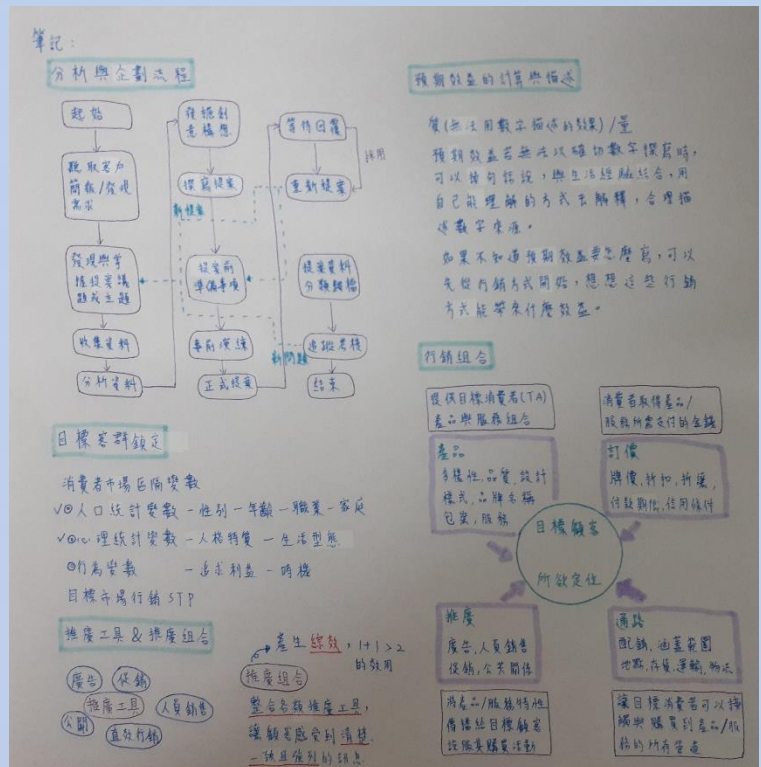 筆記：
分析與企劃流程
起始
聽取客戶
簡報/發現
需求
發現與掌
握提案議
題或主題
收集資料
分析資料
發想創
意構想
撰寫提案
新提案
提案前
準備事項
事前演練
正式提案
等待回覆
採用
重新提案
提案資料
分類歸檔
新問題
追蹤考核
結束
目標客群鎖定
消費者市場區隔變數
✓◎人口統計變數－性別－年齡－職業－家庭
✓◎心理統計變數－人格特質－生活型態
◎行為變數 －追求利益－時機
目標市場行銷STP
推廣工具&推廣組合
廣告 促銷
推廣工具 人員銷售
公關
直效行銷
產生綜效，1+1>2
的效用
推廣組合
整合各類推廣工具，
讓顧客感受到清楚、
一致且強烈的訊息
預期效益的計算與描述
質(無法用數字描述的效果)/量
預期效益若無法以確切數字撰寫時，
可以換句話說，與生活經驗結合，用
自己能理解的方式去解釋，合理描
述數字來源。
如果不知道預期效益要怎麼寫，可以
先從行銷方式開始，想想這些行銷
方式能帶來什麼效益。
行銷組合
提供目標消費者(TA)
產品與服務組合
產品
多樣性,品質,設計
樣式,品牌名稱
包裝,服務
消費者取得產品/
服務所需支付的金錢
訂價
牌價,折扣,折讓,
付款期限,信用條件
目標顧客
所欲定位
推廣
廣告,人員銷售
促銷,公共關係
將產品/服務特性
傳播給目標顧客
說服其購買活動
通路
配銷,涵蓋範圍
地點,存貨,運輸,物流
讓目標消費者可以接
觸與購買到產品/服
務的所有管道